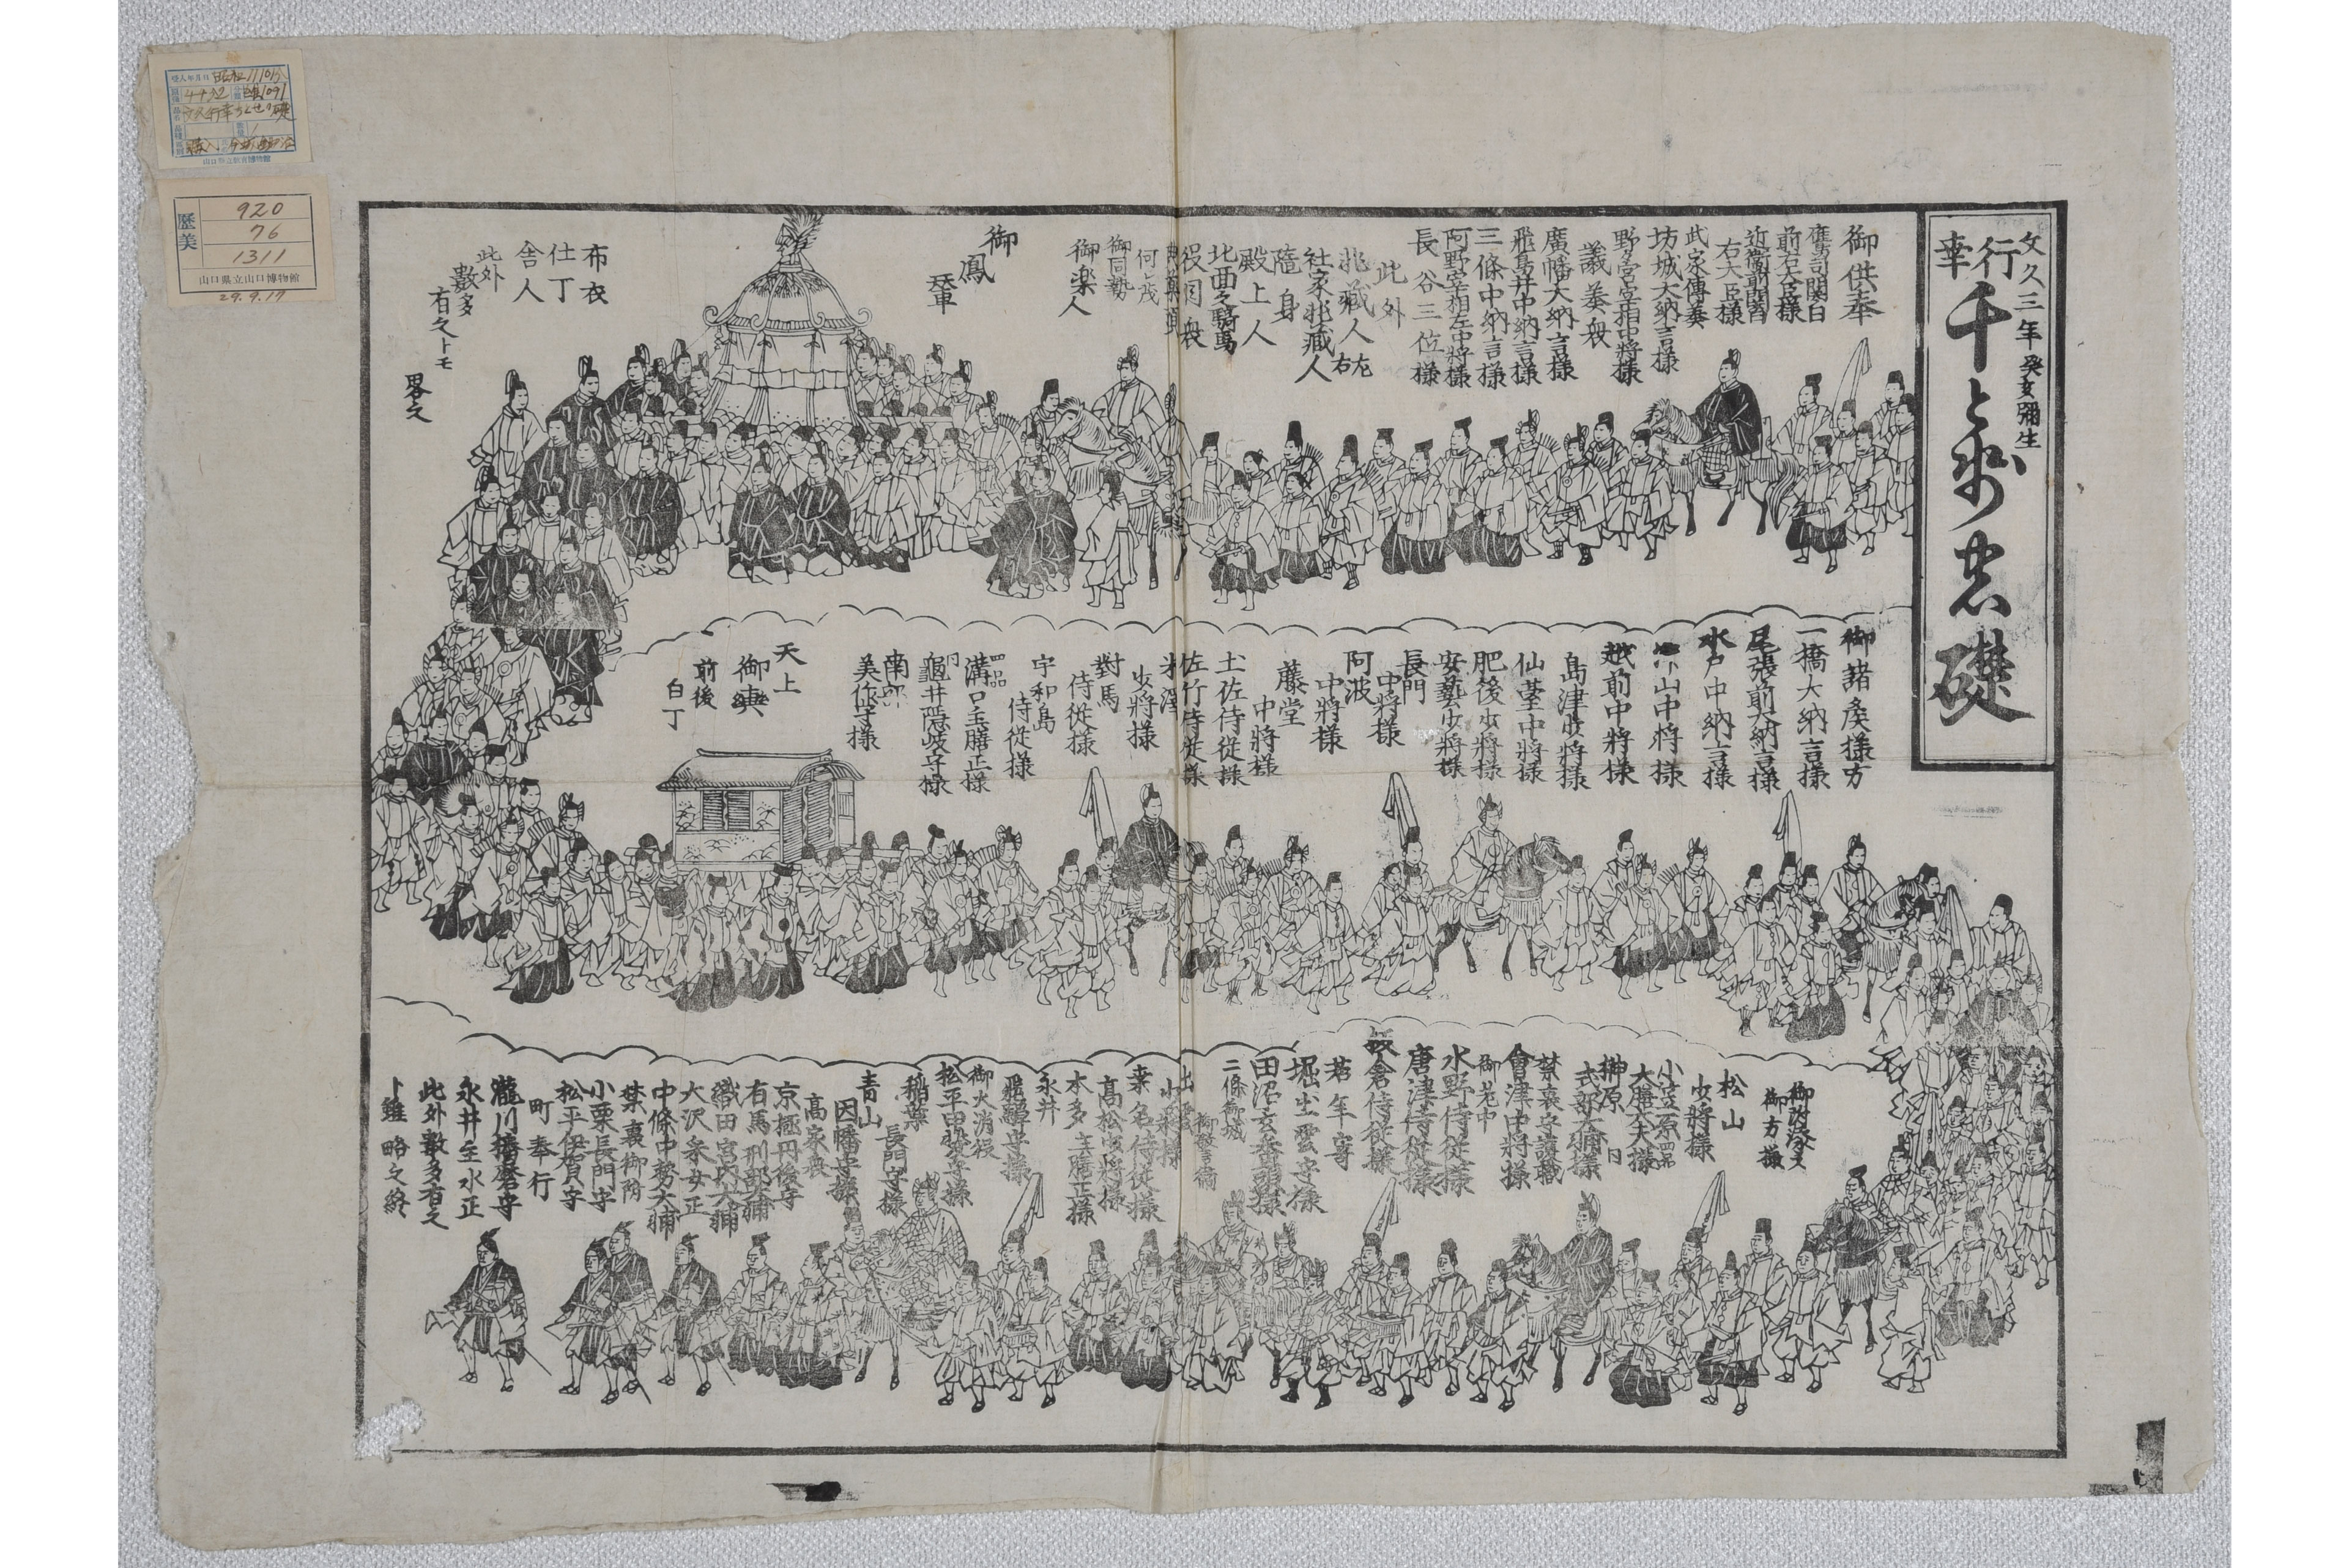 文久三年癸亥彌生
行幸
礎
御供奉
鷹司関白
前右大臣様
近衛前関白
右大臣様
武家傳奏
坊城大納言様
野々宮宰相中将様
議奏衆
廣幡大納言様
飛鳥井中納言様
三條中納言様
阿野宰相左中将様
長谷三位様
此外
非藏人左右
社家非藏人
隨身
殿上人
北面之騎馬
御楽人
御鳳輦
布衣
仕丁
舎人
此外
數多
有之トモ
畧之
御諸矦様方
一橋大納言様
尾張前大納言様
水戸中納言様
山中将様
越前中将様
島津少将様
仙䑓中将様
肥後少将様
安藝少将様
長門
中将様
阿波
中将様
藤堂
中将様
土佐侍従様
佐竹侍従様
米澤
少将様
對馬
侍従様
宇和島
侍従様
四品
溝口主膳正様
同
龜井隠岐守様
南部
美作守様
天上
御輿
前後
白丁
御方様
松山
少将様
小笠原
大膳大夫様
榊原
式部大輔様
禁裏守護職
會津中将様
御老中
水野侍従様
唐津侍従様
板倉侍従様
若年寄
堀出雲守様
田沼玄番頭様
二條御城
御警衛
出雲
少将様
桒名侍従様
高松少将様
本多主膳正様
永井
飛驒守様
御火消役
松平丹波守様
稲葉
長門守様
青山
因幡守様
高家衆
京極丹後守
有馬刑部大輔
織田宮内大輔
大沢采女正
中條中勢大輔
禁裏御附
小栗長門守
松平伊賀守
町奉行
瀧川播磨守
永井主水正
此外數多有之
ト雖略之終
920
76
1311
歴美
山口県立山口博物館
29.9.17
山口縣立教育博物館